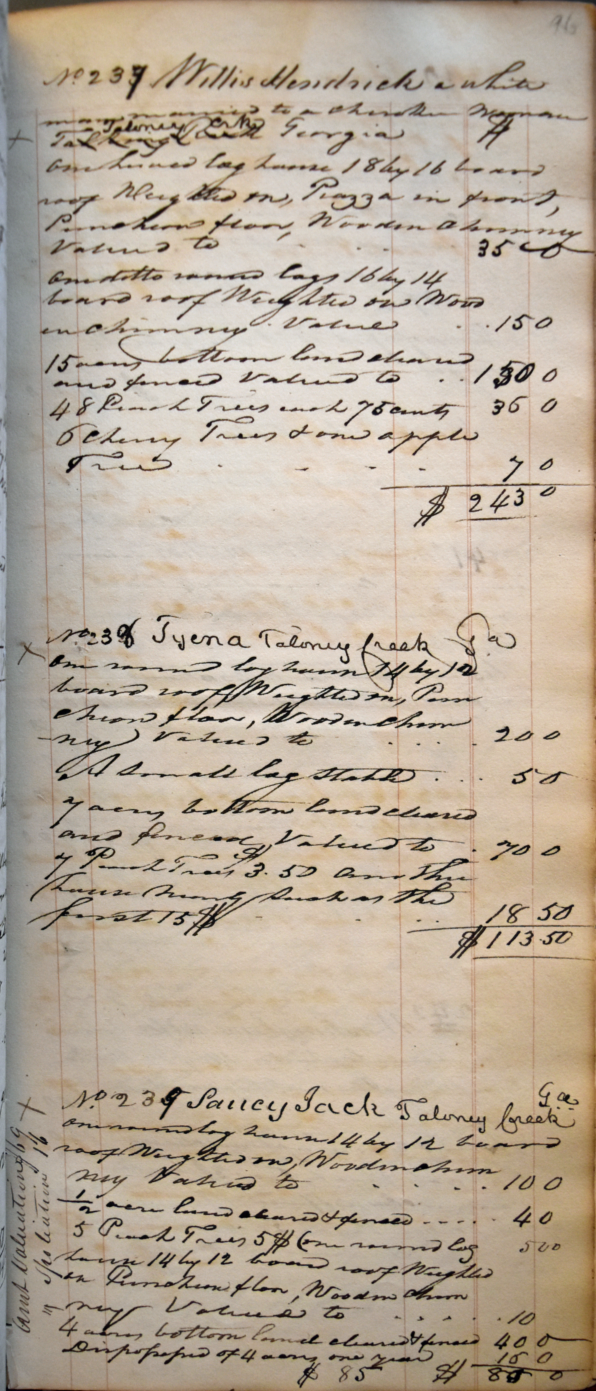 96
No 237 Willis Hendrick a white
man married to a Cherokee Woman
Taloney Crk Georgia $
One hewed log house 18 by 16 board
roof Weighted on, Piazza in front,
Puncheon floor, Wooden Chimney
Valued to 35 00
One ditto round logs 16 by 14
board roof Weighted on Wood
en Chimney. Value 15 0
15 acres bottom land cleared
and fenced Valued to 150 0
48 Peach Trees each 75 cents 36 0
6 Cherry Trees & one apple
Tree 7 0
$ 243 0
No 238 Tyena Taloney Creek Ga
One round log house 14 by 12
board roof Weighted on, Pun
cheon floor, Wooden Chim
ney Valued to 20 0
A Small log Stable 5 0
7 acres bottom land cleared
and fenced, Valued to 70 0
7 Peach Trees $3.50 another
house Nearly Such as the
first 15$ 18 50
$113.50
No 239 Saucy Jack Taloney Creek Ga
One round log house 14 by 12 board
roof Weighted on, Wooden Chim
ney Valued to 10 0
1/2 acre land cleared & fenced 4 0
5 Peach Trees 5$ (One round log 5 00
house 14 by 12 board roof Weighted
on Puncheon floor, Wooden Chim
ney Valued to 10
4 acres bottom land cleared & fenced 40 0
Dispossessed of 4 acres one year 16 0
$ 85 $ 85 0
Amt Valuation 69
" Spoliation 16